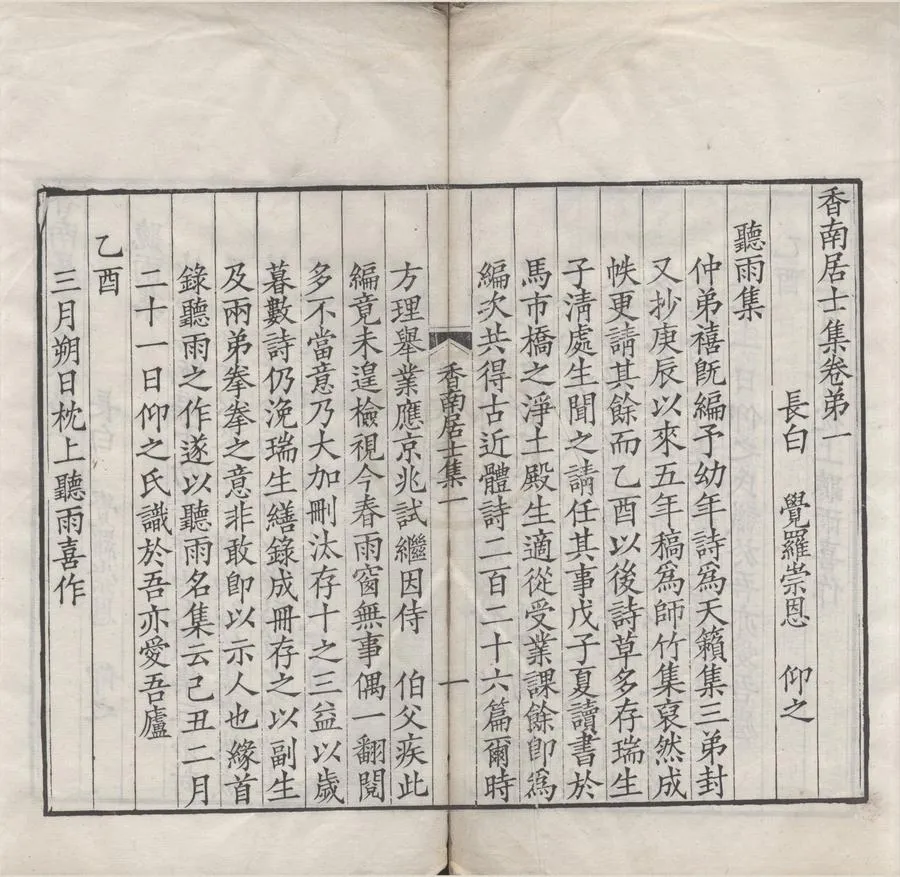 香南居士集卷弟一
長白　覺羅崇恩　仰之
聽雨集
仲弟禧旣編予幼年詩爲天籟集三弟封
又抄庚辰以來五年稿爲師竹集裒然成
帙更請其餘而乙酉以後詩草多存瑞生
子淸處生聞之請任其事戊子夏讀書於
馬市橋之淨土殿生適從受業課餘卽爲
編次共得古近體詩二百二十六篇爾時
香南居士集一　一
方理舉業應京兆試繼因侍　伯父疾此
編竟未遑檢視今春雨窗無事偶一翻閱
多不當意乃大加刪汰存十之三益以歲
暮數詩仍浼瑞生繕錄成冊存之以副生
及兩弟拳拳之意非敢卽以示人也緣首
錄聽雨之作遂以聽雨名集云己丑二月
二十一日仰之氏識於吾亦愛吾廬
乙酉
三月朔日枕上聽雨喜作